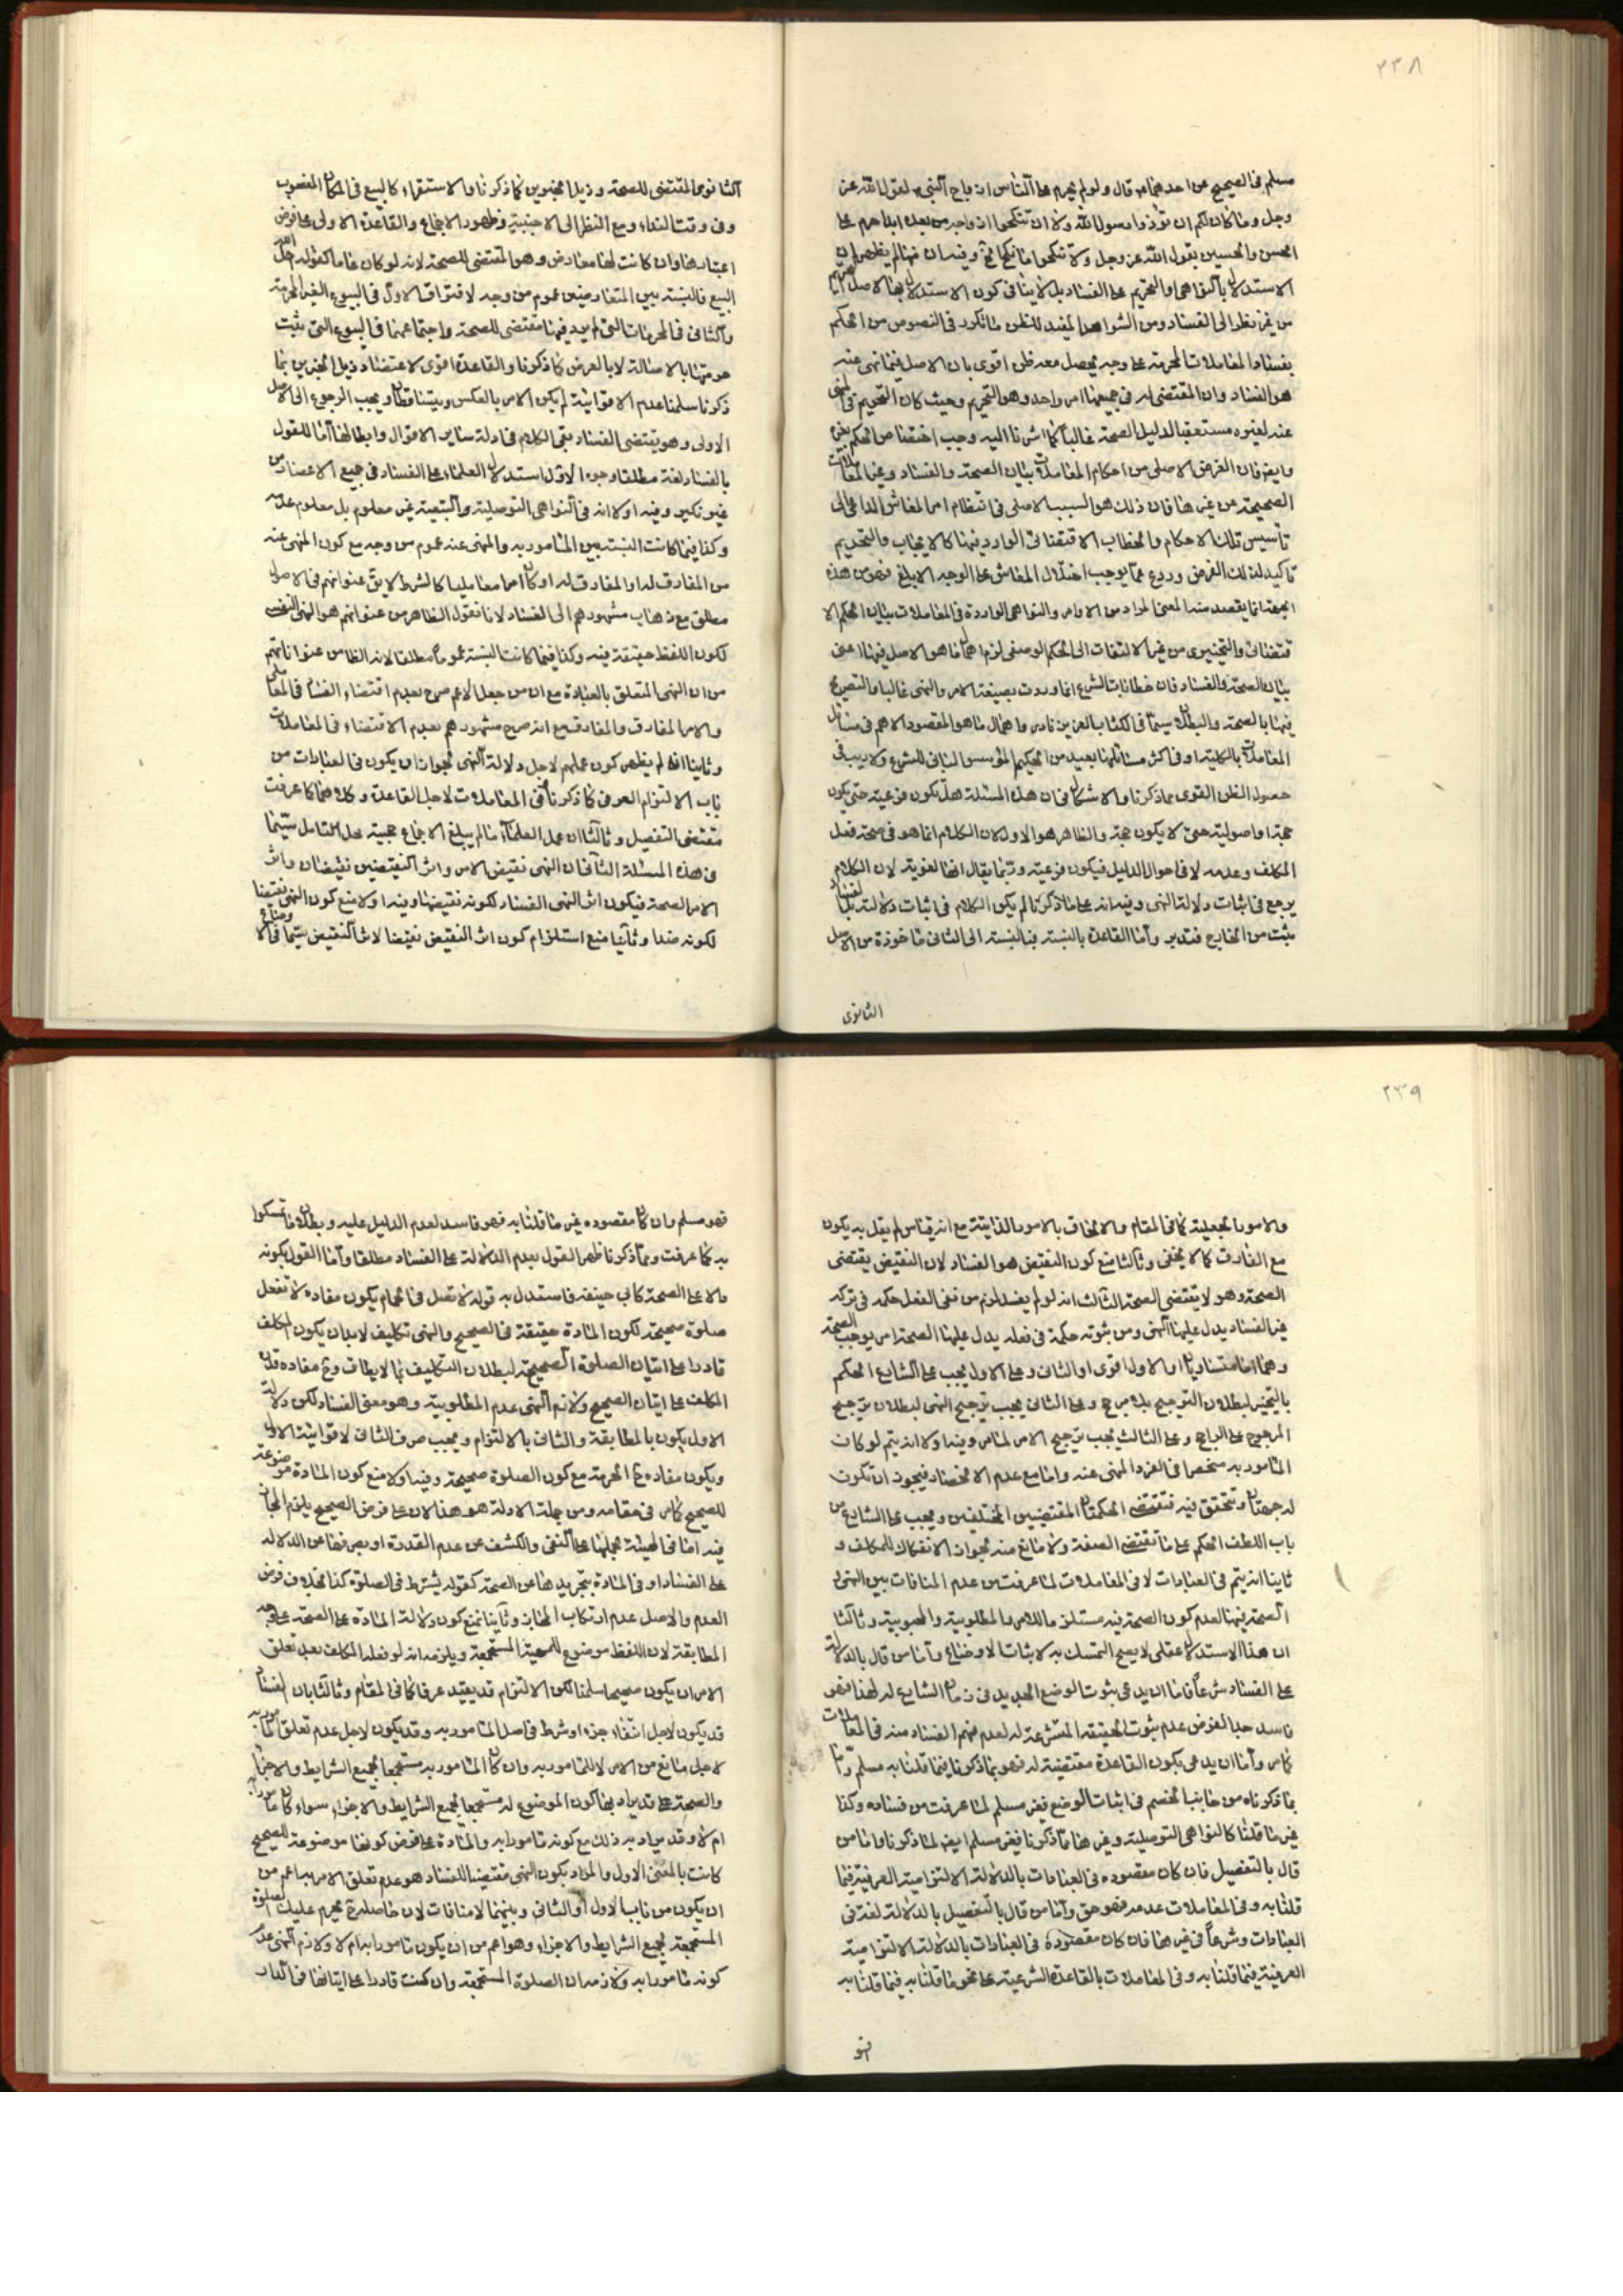 ٢٣٨
مسلم فى الصحيح عن احدهما ع قال ولو لم يحرم على الناس ازواج النبى ص لقول الله عز
وجل وما كان لكم ان تؤذوا رسول الله ولا ان تنكحوا ازواجه من بعده ابدا حرم على
الحسن والحسين بقول الله عز وجل ولا تنكحوا ما نكح وفيه ان فيما لم يظهر ان
الاستدلال بالنواهى والتحريم على الفساد بل لا ينافى كون الاستدلال بها الاصل
من غير نظر الى الفساد ومن الشواهد المفيد للظن ما تكرر فى النصوص من الحكم
بفساد المعاملات المحرمة على وجه يحصل معه ظن اقوى بان الاصل فيما نهى عنه
هو الفساد وان المقتضى له فى جميعها امر واحد وهو التحريم وحيث كان التحريم فى
عنه لغيره مستعقبا لدليل الصحة غالبا كما اشرنا اليه وجب اختصاص الحكم بغيره
وايضا فان الغرض الاصلى من احكام المعاملات بيان الصحة والفساد وتميز المعاملات
الصحيحة عن غيرها فان ذلك هو السبب الاصلى فى انتظام امر المعاش الداعى الى
تأسيس تلك الاحكام والخطاب الاقتضائى الوارد فيها كالايجاب والتحريم
تاكيد لذلك الغرض وردع عما يوجب اختلال المعاش على الوجه الابلغ فمن هذه
الجهة انما يقصد منه المعنى المراد من الاوامر والنواهى الواردة فى المعاملات بيان الحكم الا
قتضائى والتخييرى من غير الالتفات الى الحكم الوضعى لزم اهمال ما هو الاصل فيها اعنى
بيان الصحة والفساد فان خطابات الشرع انما وردت بصيغة الامر والنهى غالبا والتصريح
فيها بالصحة والبطلان سيما فى الكتاب العزيز نادر واهمال ما هو المقصود الاهم فى مسائل
المعاملات بالكلية او فى اكثر مسائلها بعيد من الحكيم المؤسس لمبانى الشرع ولا ريب فى
حصول الظن القوى مما ذكرنا والاشكال فى ان هذه المسئلة هل تكون فرعية حتى يكون
حجة او اصولية حتى لا يكون حجة والظاهر هو الاول لان الكلام انما هو فى صحة فعل
المكلف وعدمه لا فى احوال الدليل فيكون فرعية وربما يقال انها لغوية لان الكلام
يرجع فى اثبات دلالة النهى وفيه انه على ما ذكرنا لم يكن الكلام فى اثبات دلالته بل
مثبت من الخارج فتدبر واما القاعدة بالنسبة فبالنسبة الى الثانى ماخوذة من الاصل
الثانوى
الثانوى المقتضى للصحة وذيل الخبرين كما ذكرنا والاستقراء كالبيع فى المكان المغصوب
وفى وقت النداء ومع النظر الى الاجنبية وظهور الاجماع والقاعدة الاولى على فرض
اعتبارها وان كانت لها معارض وهو المقتضى للصحة لانه لو كان عاما كقوله احل الله
البيع فالنسبة بين المتعارضين عموم من وجه لافتراق الاول فى البيوع الغير المحرمة
والثانى فى المحرمات التى لم يرد فيها مقتضى للصحة واجتماعهما فى البيوع التى يثبت
حرمتها بالاصالة لا بالعرض كما ذكرنا والقاعدة اقوى لاعتضاد ذيل الخبرين بما
ذكرنا سلمنا عدم الاقوائية لم يكن الامر بالعكس ويتساقطان ويجب الرجوع الى الاصل
الاولى وهو يقتضى الفساد بقى الكلام فى ادلة ساير الاقوال وابطالها اما للقول
بالفساد لغة مطلقا وجوه الاول استدلال العلماء على الفساد فى جميع الاعصار من
غير نكير وفيه اولا انه فى النواهى التوصلية والتبعية غير معلوم بل معلوم عدمه
وكذا فيما كانت النسبة بين المامور به والمنهى عنه عموم من وجه مع كون المنهى عنه
من المفارق له او المفارق له او كان امرا معامليا كالشرط لا يق عنوانهم فى الاصول
مطلق مع ذهاب مشهورهم الى الفساد لانا نقول الظاهر من عنوانهم هو النهى النفسى
لكون اللفظ حقيقة فيه وكذا فيما كانت النسبة عموما مطلقا لانه الظاهر من عنواناتهم
من ان النهى المتعلق بالعبادة مع ان من جعل الاعم صرح بعدم اقتضاء الفساد فى المعاملى
والامر المفارق والمفارق مع انه صرح مشهورهم بعدم الاقتضاء فى المعاملات
وثانيا انه لم يظهر كون عملهم لاجل دلالة النهى لجواز ان يكون فى العبادات من
باب الالتزام العرفى كما ذكرنا وفى المعاملات لاجل القاعدة وكلاهما كما عرفت
مقتضى التفصيل وثالثا ان عمل العلماء ما لم يبلغ الاجماع حجيته محل التامل سيما
فى هذه المسئلة الثانى ان النهى نقيض الامر واثر النقيضين نقيضان واثر
الامر الصحة فيكون اثر النهى الفساد لكونه نقيضها وفيه اولا منع كون النهى نقيضا
لكونه ضدا وثانيا منع استلزام كون اثر النقيض نقيضا لاثر النقيض سيما فى الاوضاع
٢٣٩
والامور الجعلية كما فى المقام والالحاق بالامور الذاتية مع انه قياس لم يقل به يكون
مع الفارق كما لا يخفى وثالثا منع كون النقيض هو الفساد لان النقيض يقتضى
الصحة وهو لا يقتضى الصحة الثالث انه لو لم يفسد لزم من نفى الفعل حكمة فى تركه
غير الفساد يدل عليها النهى ومن ثبوته حكمة فى فعله يدل عليها الصحة امر يوجب الصحة
وهما اما متساويان او الاول اقوى او الثانى وعلى الاول يجب على الشارع الحكم
بالتخيير لبطلان الترجيح بلا مرجح وعلى الثانى يجب ترجيح النهى لبطلان ترجيح
المرجوح على الراجح وعلى الثالث يجب ترجيح الامر لما مر وفيه اولا انه يتم لو كان
المامور به منحصرا فى الفرد المنهى عنه واما مع عدم الانحصار فيجوز ان تكون
له جهتان وتتحقق فيه فتقتضى الحكمتان المقتضيين المختلفين ويجب على الشارع من
باب اللطف الحكم على ما تقتضى الصفة ولا مانع منه لجواز الانفكاك للمكلف و
ثانيا انه يتم فى العبادات لا فى المعاملات لما عرفت من عدم المنافات بين النهى و
الصحة فيها لعدم كون الصحة فيه مستلزما للامر والمطلوبية والمحبوبية وثالثا
ان هذا الاستدلال عقلى لا يصح التمسك به لاثبات الاوضاع واما من قال بالدلالة
على الفساد شرعا فاما ان يدعى بثبوت الوضع الجديد فى زمان الشارع له لهذا فهو
فاسد جدا لفرض عدم ثبوت الحقيقة المتشرعة له لعدم فهم الفساد منه فى المعاملات
كما مر واما ان يدعى بكون القاعدة مقتضية له فهو بما ذكرنا فيما قلنا به مسلم واما
بما ذكرناه من جانب الخصم فى اثبات الوضع فغير مسلم لما عرفت من فساده وكذا
غير ما قلنا كالنواهى التوصلية وغيرها مما ذكرنا فغير مسلم ايضا لما ذكرنا واما من
قال بالتفصيل فان كان مقصوده فى العبادات بالدلالة الالتزامية العرفية فيما
قلنا به وفى المعاملات عدمه فهو حق واما من قال بالتفصيل بالدلالة لغة فى
العبادات وشرعا فى غيرها فان كان مقصوده فى العبادات بالدلالة الالتزامية
العرفية فيما قلنا به وفى المعاملات بالقاعدة الشرعية على نحو ما قلنا به فيما قلنا به
فهو
فهو مسلم وان كان مقصوده غير ما قلنا به فهو فاسد لعدم الدليل عليه وبطلان ما تمسكوا
به كما عرفت ومما ذكرنا ظهر القول بعدم الدلالة على الفساد مطلقا واما القول بكونه
دالا على الصحة كابى حنيفة فاستدل به قوله لا تصل فى الحمام يكون مفاده لا تفعل
صلوة صحيحة لكون المادة حقيقة فى الصحيح والنهى تكليف لابد ان يكون المكلف
قادرا على اتيان الصلوة الصحيحة لبطلان التكليف بما لا يطاق وح مفاده قدرة
المكلف على اتيان الصحيح ولازم النهى عدم المطلوبية وهو معنى الفساد لكن دلالة
الاول يكون بالمطابقة والثانى بالالتزام ويجب صرف الثانى لاقوائية الاول
ويكون مفاده ح الحرمة مع كون الصلوة صحيحة وفيه اولا منع كون المادة موضوعة
للصحيح كما مر فى مقامه ومن جملة الادلة هو هذا لان على فرض الصحيح يلزم المجاز
فيه اما فى الهيئة بحملها على النفى والكشف عن عدم القدرة او بصرفها عن الدلالة
على الفساد او فى المادة بتجريدها عن الصحة كقوله يشترط فى الصلوة كذا بخلاف فرض
العدم والاصل عدم ارتكاب المجاز وثانيا نمنع كون دلالة المادة على الصحة على وجه
المطابقة لان اللفظ موضوع للمهية المستجمعة ويلزمه انه لو فعله المكلف بعد تعلق
الامر ان يكون صحيحا سلمنا لكن الالتزام قد يفيد عرفا كما فى المقام وثالثا بان الفساد
قد يكون لاجل انتفاء جزء او شرط فى اصل المامور به وقد يكون لاجل عدم تعلق الامر به
لاجل مانع من الامر لا للمامور به وان كان المامور به مستجمعا لجميع الشرايط والاجزاء
والصحة قد يراد بها كون الموضوع له مستجمعا لجميع الشرايط والاجزاء سواء كان مامورا به
ام لا وقد يراد به ذلك مع كونه مامورا به والمادة على فرض كونها موضوعة للصحيح
كانت بالمعنى الاول والمراد بكون النهى مقتضيا للفساد هو عدم تعلق الامر به اعم من
ان يكون من باب الاول او الثانى وبينهما لا منافات لان حاصله ح يحرم عليك الصلوة
المستجمعة لجميع الشرايط والاجزاء وهو اعم من ان يكون مامورا به ام لا ولازم النهى عدم
كونه مامورا به ولازمه ان الصلوة المستجمعة وان كنت قادرا على اتيانها فى الدار